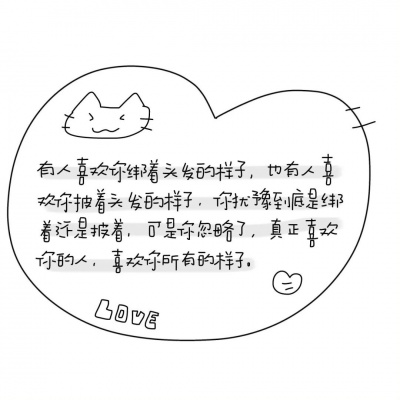 有人喜欢你绑着头发的样子，也有人喜
欢你披着头发的样子，你犹豫到底是绑
着还是披着，可是你忽略了，真正喜欢
你的人，喜欢你所有的样子。
LOVE